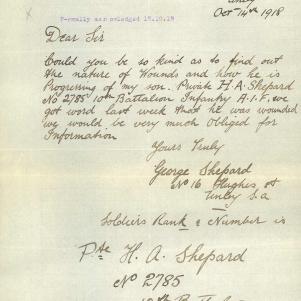 Formally acknowledged 18.10.18
Unley
Octr 14th 1918
Dear Sir
Could you be so kind as to find out
the nature of Wounds and how he is
Progresing of my son. Private H. A. Shepard
No 2785 10th Battalion Infantry A.I.F. we
got word last week that he was wounded
we would be very much Obliged for
Information
Yours Truly
George Shepard
No 16 Hughes St
Unley S.a
Soldiers Rank & Number is
Pte H. A. Shepard
No 2785
10th